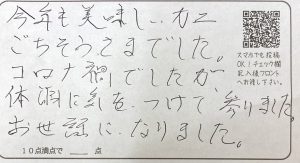 今年も美味しいカニ
ごちそうさまでした。
コロナ禍でしたが、
体調に気をつけて参りました。
お世話になりました。
スマホでも投稿
OK!チェック欄
記入後フロント
へお渡し下さい。
10点満点で 点